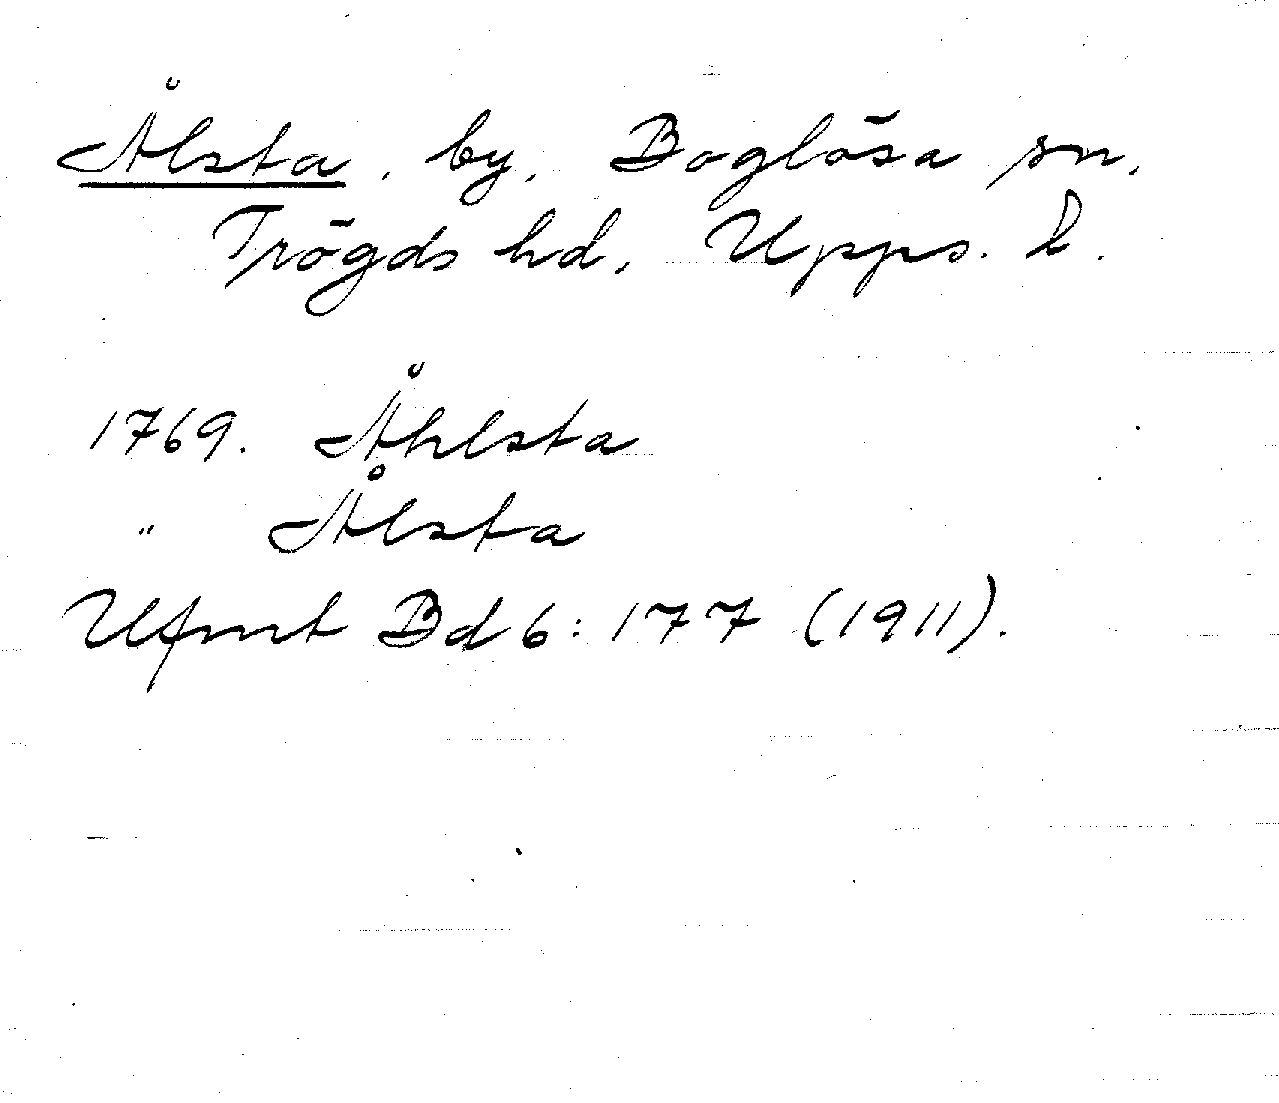 Ålsta, by, Boglösa sn,
Trögds hd, Upps. l.
1769. Åhlsta
" Ålsta
Ufmt Bd 6: 177 (1911).